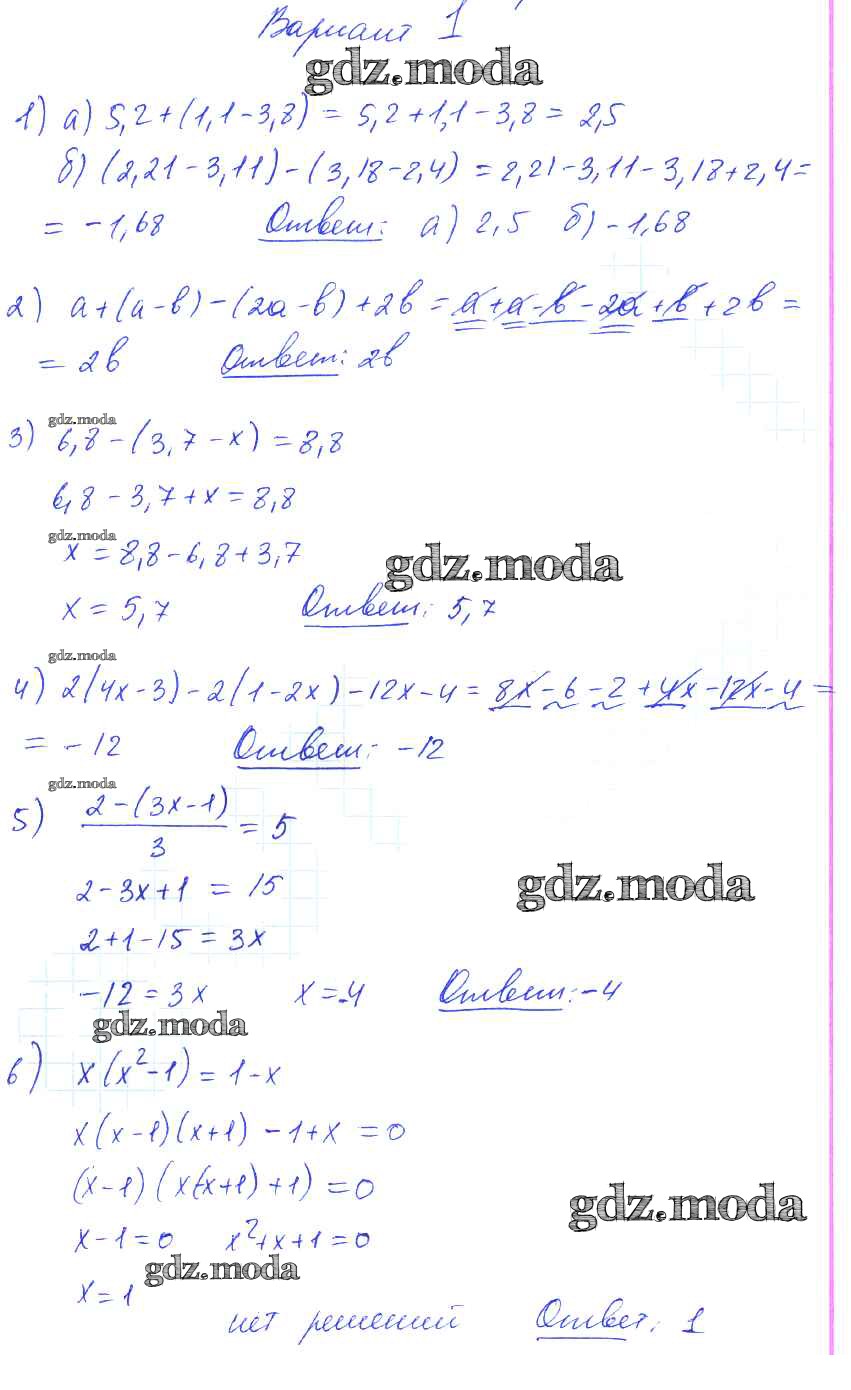 Вариант 1
gdz.moda
1) а) 5,2+(1,1-3,8) = 5,2+1,1-3,8 = 2,5
б) (2,21-3,11)-(3,18-2,4) = 2,21-3,11-3,18+2,4=
= -1,68 Ответ: а) 2,5 б) -1,68
2) a+(a-b)-(2a-b)+2b = a+a-b-2a+b+2b =
= 2b Ответ: 2b
gdz.moda
3) 6,8-(3,7-x) = 8,8
6,8-3,7+x = 8,8
gdz.moda
x = 8,8-6,8+3,7
gdz.moda
x = 5,7 Ответ: 5,7
gdz.moda
4) 2(4x-3)-2(1-2x)-12x-4 = 8x-6-2+4x-12x-4 =
= -12 Ответ: -12
gdz.moda
5) (2-(3x-1))/3 = 5
2-3x+1 = 15
gdz.moda
2+1-15 = 3x
-12 = 3x x = -4 Ответ: -4
gdz.moda
6) x(x²-1) = 1-x
x(x-1)(x+1)-1+x = 0
(x-1)(x(x+1)+1) = 0
gdz.moda
x-1=0 x²+x+1=0
gdz.moda
x=1
нет решений Ответ: 1